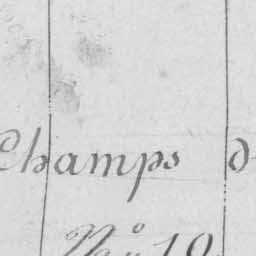 Champs d
N° 10